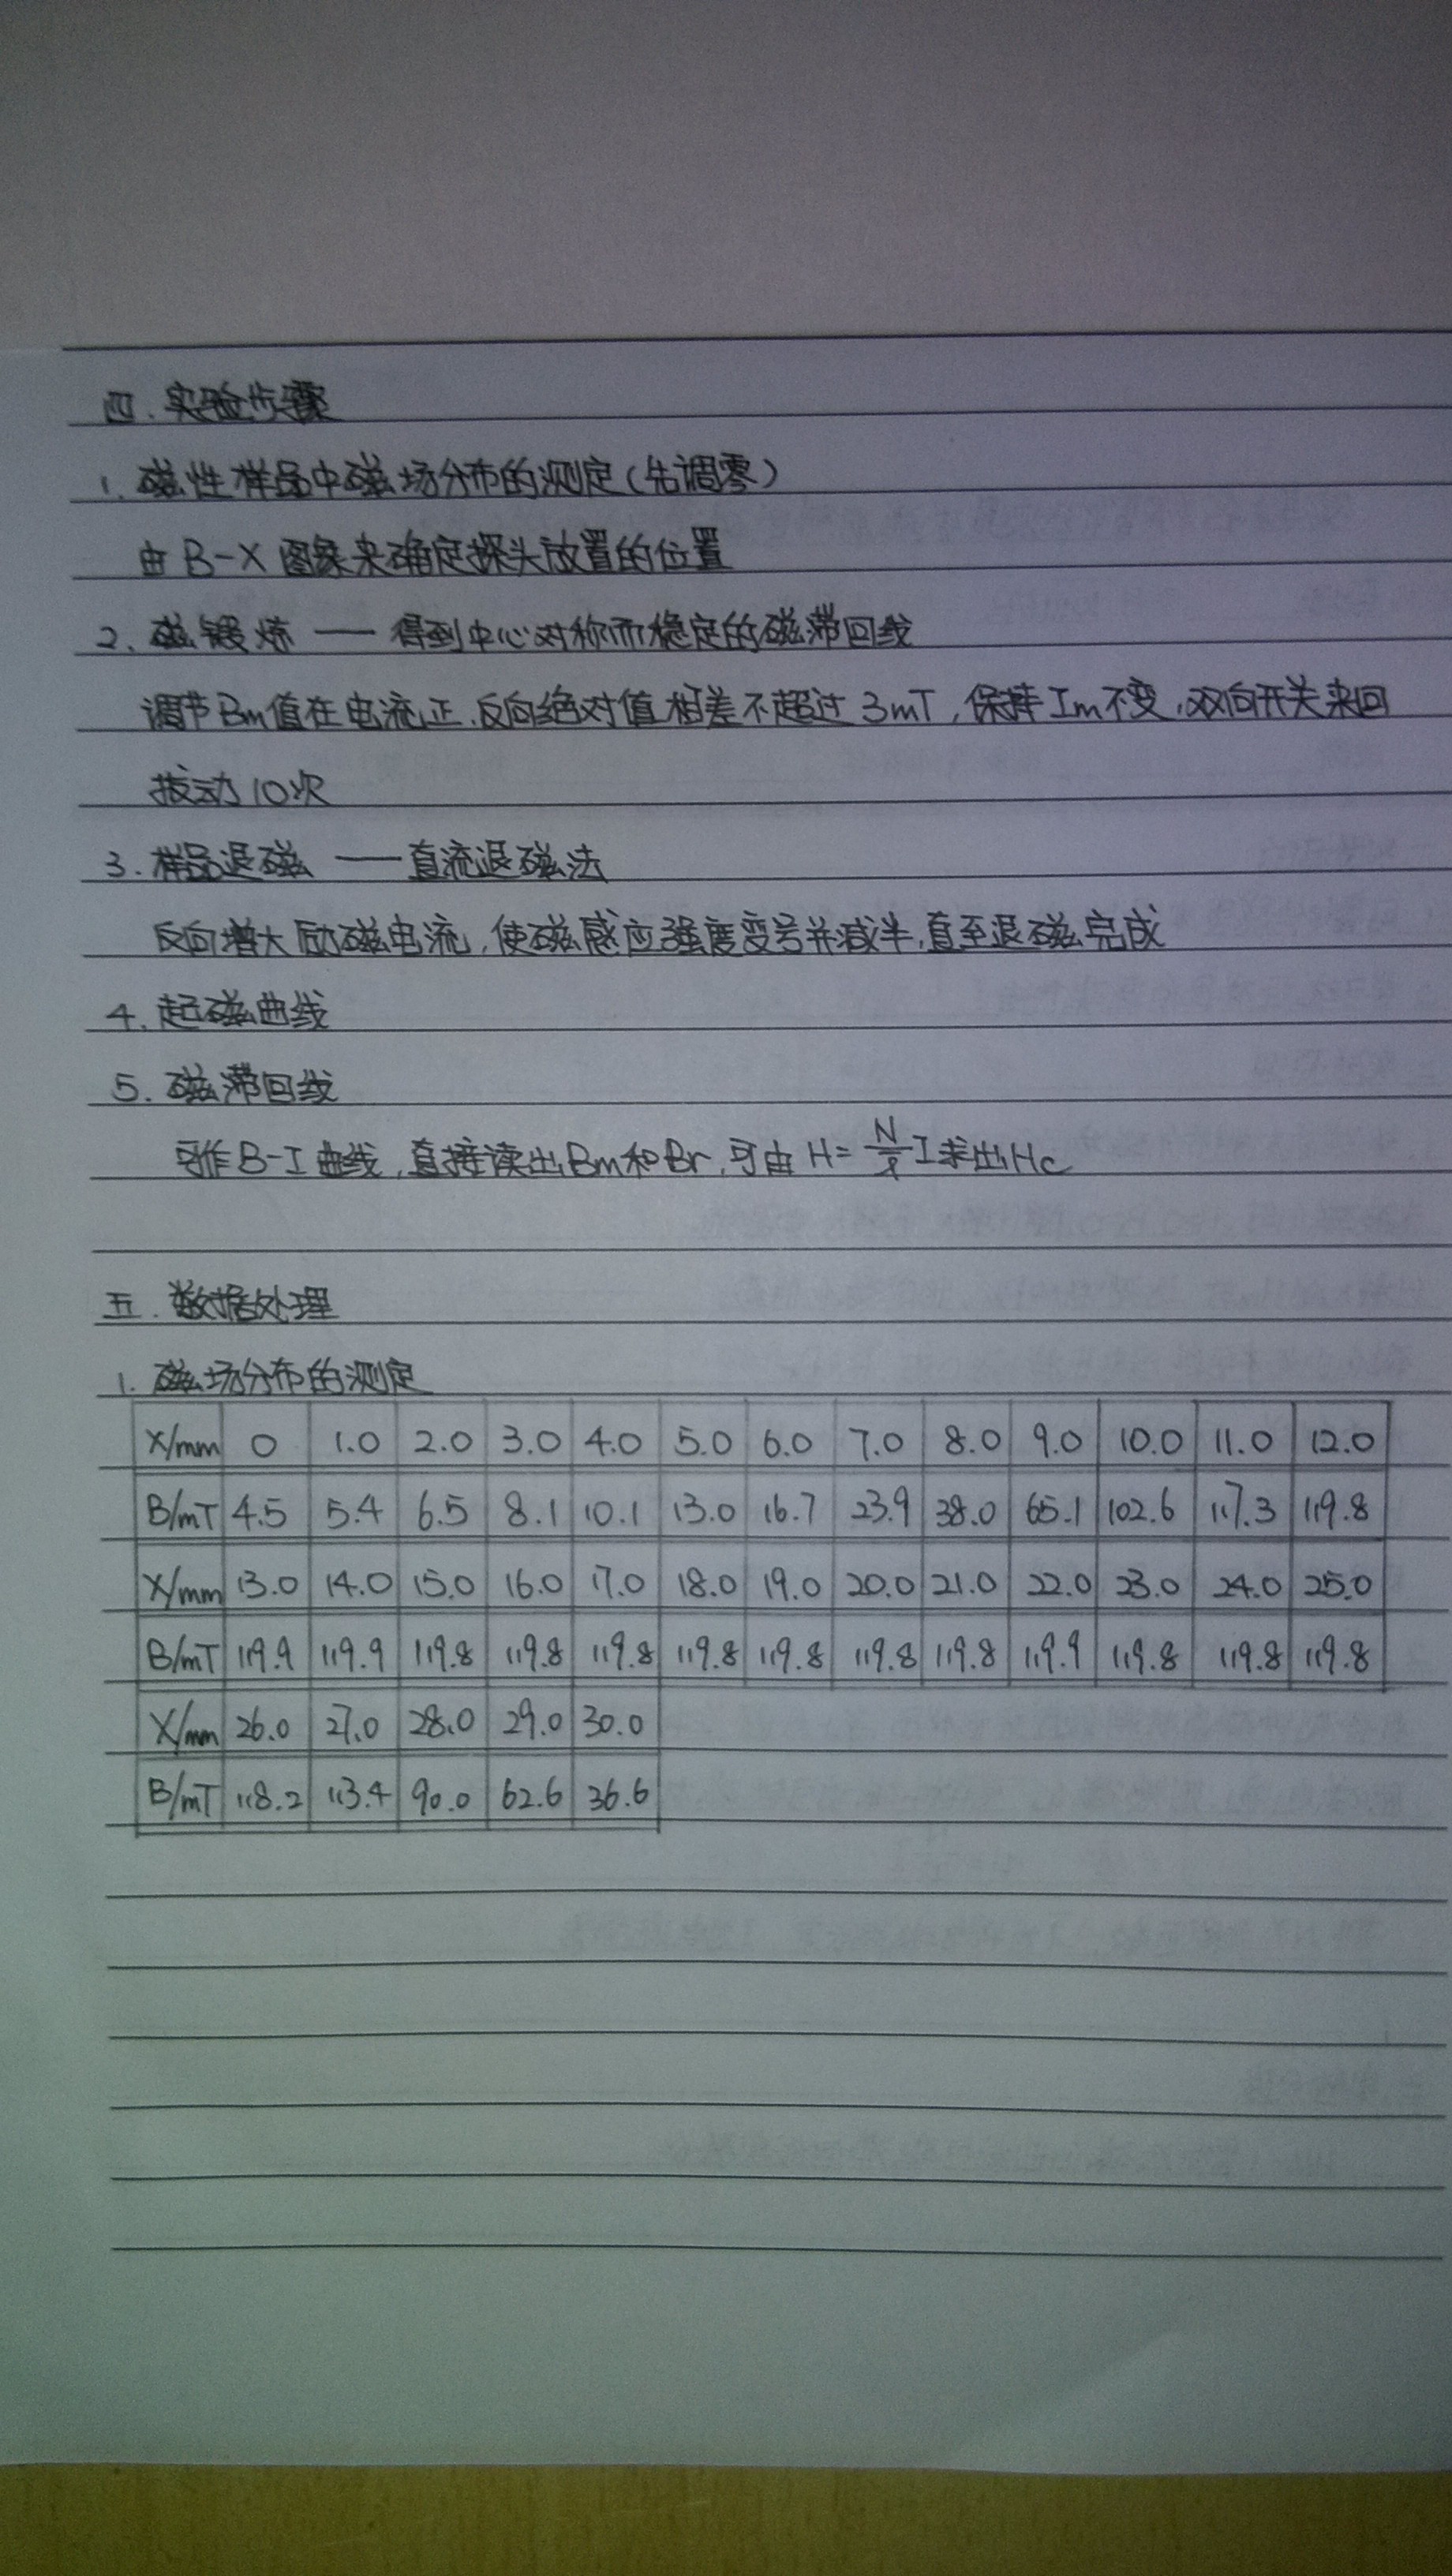 四. 实验步骤
1. 磁性样品中磁场分布的测定(先调零)
由 B-X 图象来确定探头放置的位置
2. 磁锻炼 —— 得到中心对称而稳定的磁滞回线
调节Bm值在电流正、反向绝对值相差不超过 3mT, 保持 Im 不变, 双向开关来回
拨动 10次
3. 样品退磁 —— 直流退磁法
反向增大励磁电流, 使磁感应强度变号并减半, 直至退磁完成
4. 起磁曲线
5. 磁滞回线
可作 B-I 曲线, 直接读出 Bm和 Br, 可由 H = N/ℓ I 求出 Hc
五. 数据处理
1. 磁场分布的测定
X/mm 0 1.0 2.0 3.0 4.0 5.0 6.0 7.0 8.0 9.0 10.0 11.0 12.0
B/mT 4.5 5.4 6.5 8.1 10.1 13.0 16.7 23.9 38.0 65.1 102.6 117.3 119.8
X/mm 13.0 14.0 15.0 16.0 17.0 18.0 19.0 20.0 21.0 22.0 23.0 24.0 25.0
B/mT 119.9 119.9 119.8 119.8 119.8 119.8 119.8 119.8 119.8 119.9 119.8 119.8 119.8
X/mm 26.0 27.0 28.0 29.0 30.0
B/mT 118.2 113.4 90.0 62.6 36.6